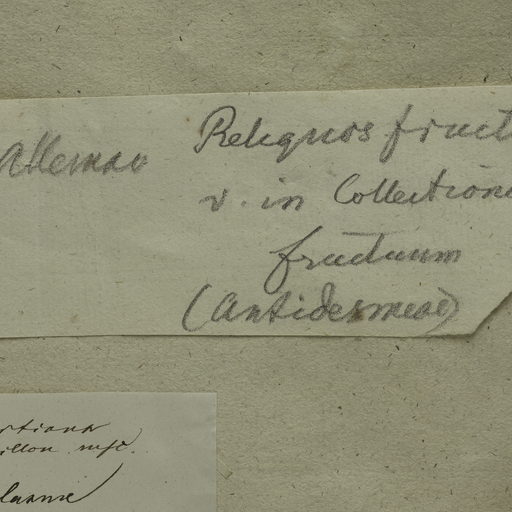 Allemao Reliquos fruct
v. in Collectione
fructuum
(Antidesmeae)
illon mss.